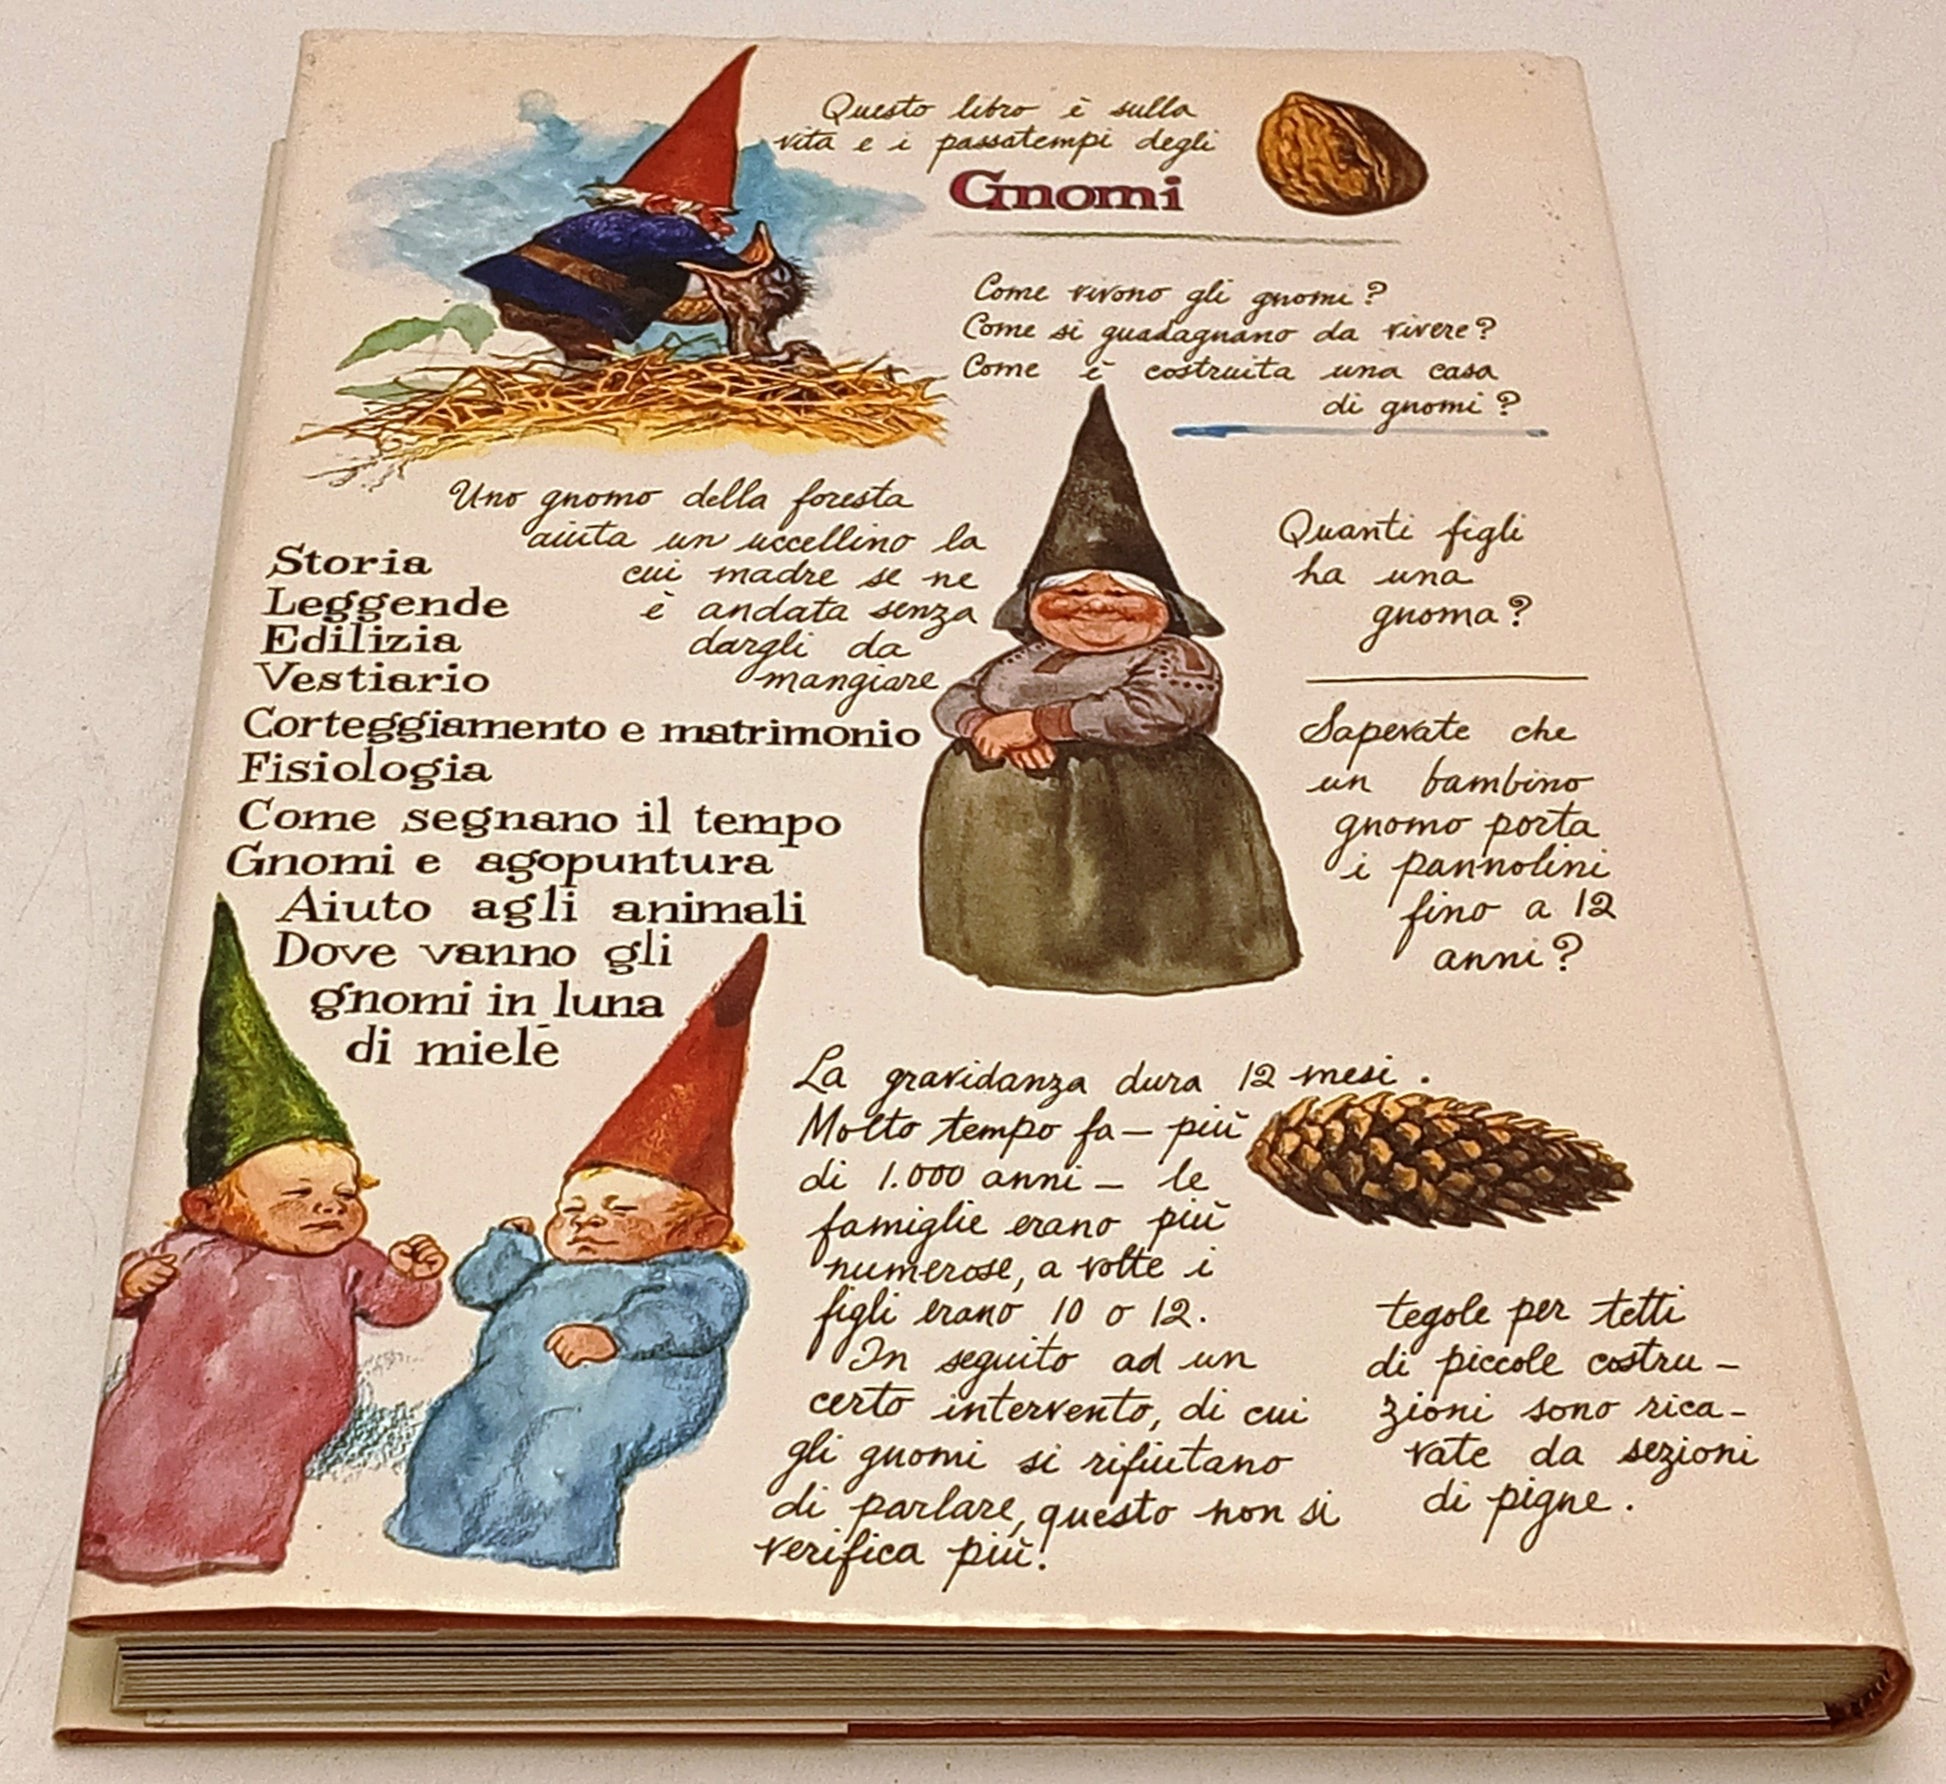 Questo libro è sulla
vita e i passatempi degli
Gnomi
Come vivono gli gnomi?
Come si guadagnano da vivere?
Come è costruita una casa
di gnomi?
Uno gnomo della foresta
aiuta un uccellino la
cui madre se ne
è andata senza
dargli da
mangiare
Storia
Leggende
Edilizia
Vestiario
Corteggiamento e matrimonio
Fisiologia
Come segnano il tempo
Gnomi e agopuntura
Aiuto agli animali
Dove vanno gli
gnomi in luna
di miele
Quanti figli
ha una
gnoma?
Sapevate che
un bambino
gnomo porta
i pannolini
fino a 12
anni?
La gravidanza dura 12 mesi.
Molto tempo fa – più
di 1.000 anni – le
famiglie erano più
numerose, a volte i
figli erano 10 o 12.
In seguito ad un
certo intervento, di cui
gli gnomi si rifiutano
di parlare, questo non si
verifica più!
tegole per tetti
di piccole costru-
zioni sono rica-
vate da sezioni
di pigne.